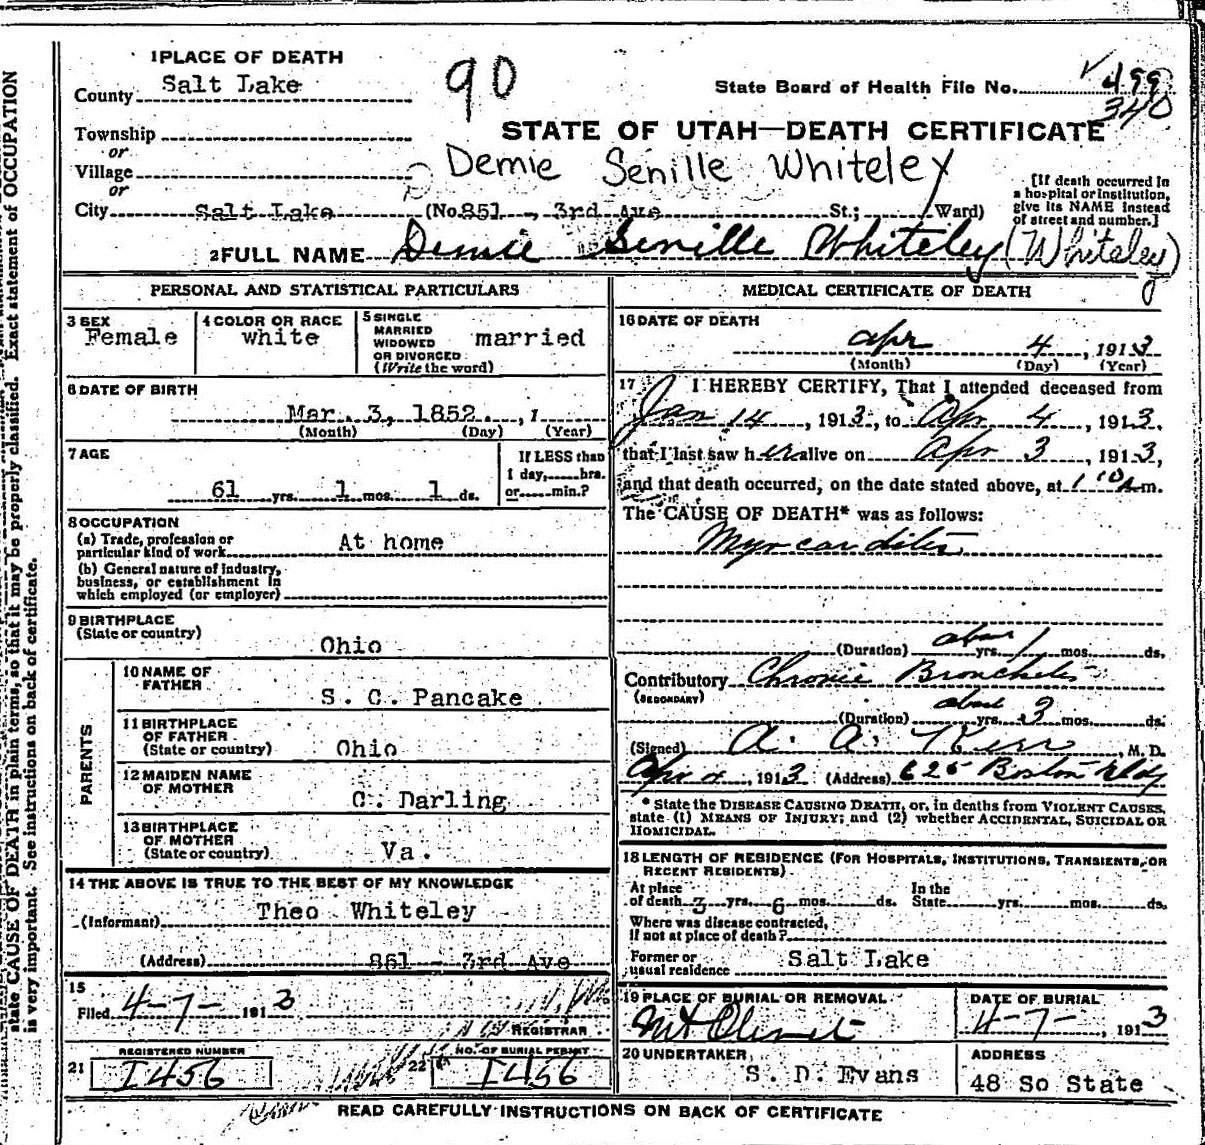 1 PLACE OF DEATH
County Salt Lake
90
State Board of Health File No. 499
340
Township
or
Village
or
STATE OF UTAH—DEATH CERTIFICATE
Demie Senille Whiteley
City Salt Lake (No. 851 - 3rd Ave St.; Ward)
[If death occurred in
a hospital or institution,
give its NAME instead
of street and number.]
2 FULL NAME Demie Senille Whiteley (Whiteley)
PERSONAL AND STATISTICAL PARTICULARS
3 SEX
Female
4 COLOR OR RACE
white
5 SINGLE
MARRIED
WIDOWED
OR DIVORCED
(Write the word)
married
6 DATE OF BIRTH
Mar. 3, 1852. , 1
(Month) (Day) (Year)
7 AGE
61 yrs. 1 mos. 1 ds.
If LESS than
1 day, hrs.
or min.?
8 OCCUPATION
(a) Trade, profession or
particular kind of work At home
(b) General nature of Industry,
business, or establishment in
which employed (or employer)
9 BIRTHPLACE
(State or country)
Ohio
PARENTS
10 NAME OF
FATHER
S. C. Pancake
11 BIRTHPLACE
OF FATHER
(State or country) Ohio
12 MAIDEN NAME
OF MOTHER
C. Darling
13 BIRTHPLACE
OF MOTHER
(State or country) Va.
14 THE ABOVE IS TRUE TO THE BEST OF MY KNOWLEDGE
(Informant) Theo Whiteley
(Address) 851 - 3rd Ave
15
Filed 4-7- 1913
REGISTRAR
21 REGISTERED NUMBER
I456
22 NO. OF BURIAL PERMIT
I456
MEDICAL CERTIFICATE OF DEATH
16 DATE OF DEATH
Apr 4, 1913
(Month) (Day) (Year)
17 I HEREBY CERTIFY, That I attended deceased from
Jan 14, 1913, to Apr 4, 1913.
that I last saw her alive on Apr 3, 1913,
and that death occurred, on the date stated above, at 1:10 A m.
The CAUSE OF DEATH* was as follows:
Myocarditis
(Duration) about 1 yrs. mos. ds.
Contributory Chronic Bronchitis
(SECONDARY)
(Duration) about 3 yrs. mos. ds.
(Signed) A. A. Kerr, M. D.
Apr 4, 1913 (Address) 625 Boston Bldg
* State the DISEASE CAUSING DEATH, or, in deaths from VIOLENT CAUSES,
state (1) MEANS OF INJURY; and (2) whether ACCIDENTAL, SUICIDAL OR
HOMICIDAL.
18 LENGTH OF RESIDENCE (FOR HOSPITALS, INSTITUTIONS, TRANSIENTS, OR
RECENT RESIDENTS)
At place
of death 3 yrs. 6 mos. ds.
In the
State yrs. mos. ds.
Where was disease contracted,
If not at place of death?
Former or
usual residence Salt Lake
19 PLACE OF BURIAL OR REMOVAL
Mt Olivet
DATE OF BURIAL
4-7-, 1913
20 UNDERTAKER
S. D. Evans
ADDRESS
48 So State
READ CAREFULLY INSTRUCTIONS ON BACK OF CERTIFICATE
state CAUSE OF DEATH in plain terms, so that it may be properly classified. Exact statement of OCCUPATION
is very important. See instructions on back of certificate.